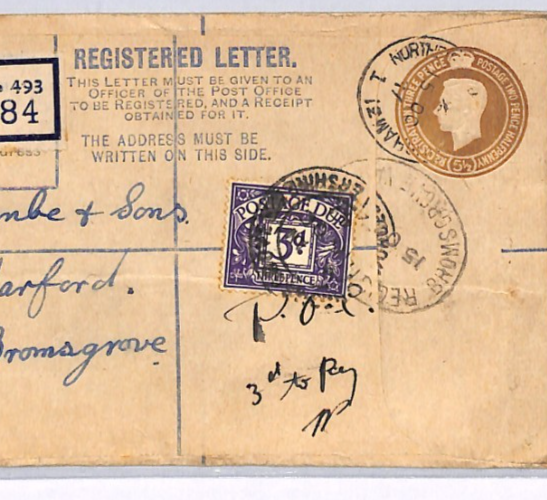 493
84
REGISTERED LETTER.
THIS LETTER MUST BE GIVEN TO AN
OFFICER OF THE POST OFFICE
TO BE REGISTERED, AND A RECEIPT
OBTAINED FOR IT.
THE ADDRESS MUST BE
WRITTEN ON THIS SIDE.
POSTAGE TWO PENCE HALFPENNY
THREE PENCE
(5½d)
nbe & Sons.
arford.
Bromsgrove
POSTAGE DUE
3d.
THREE PENCE
BROMSGROVE
15
3d to Pay